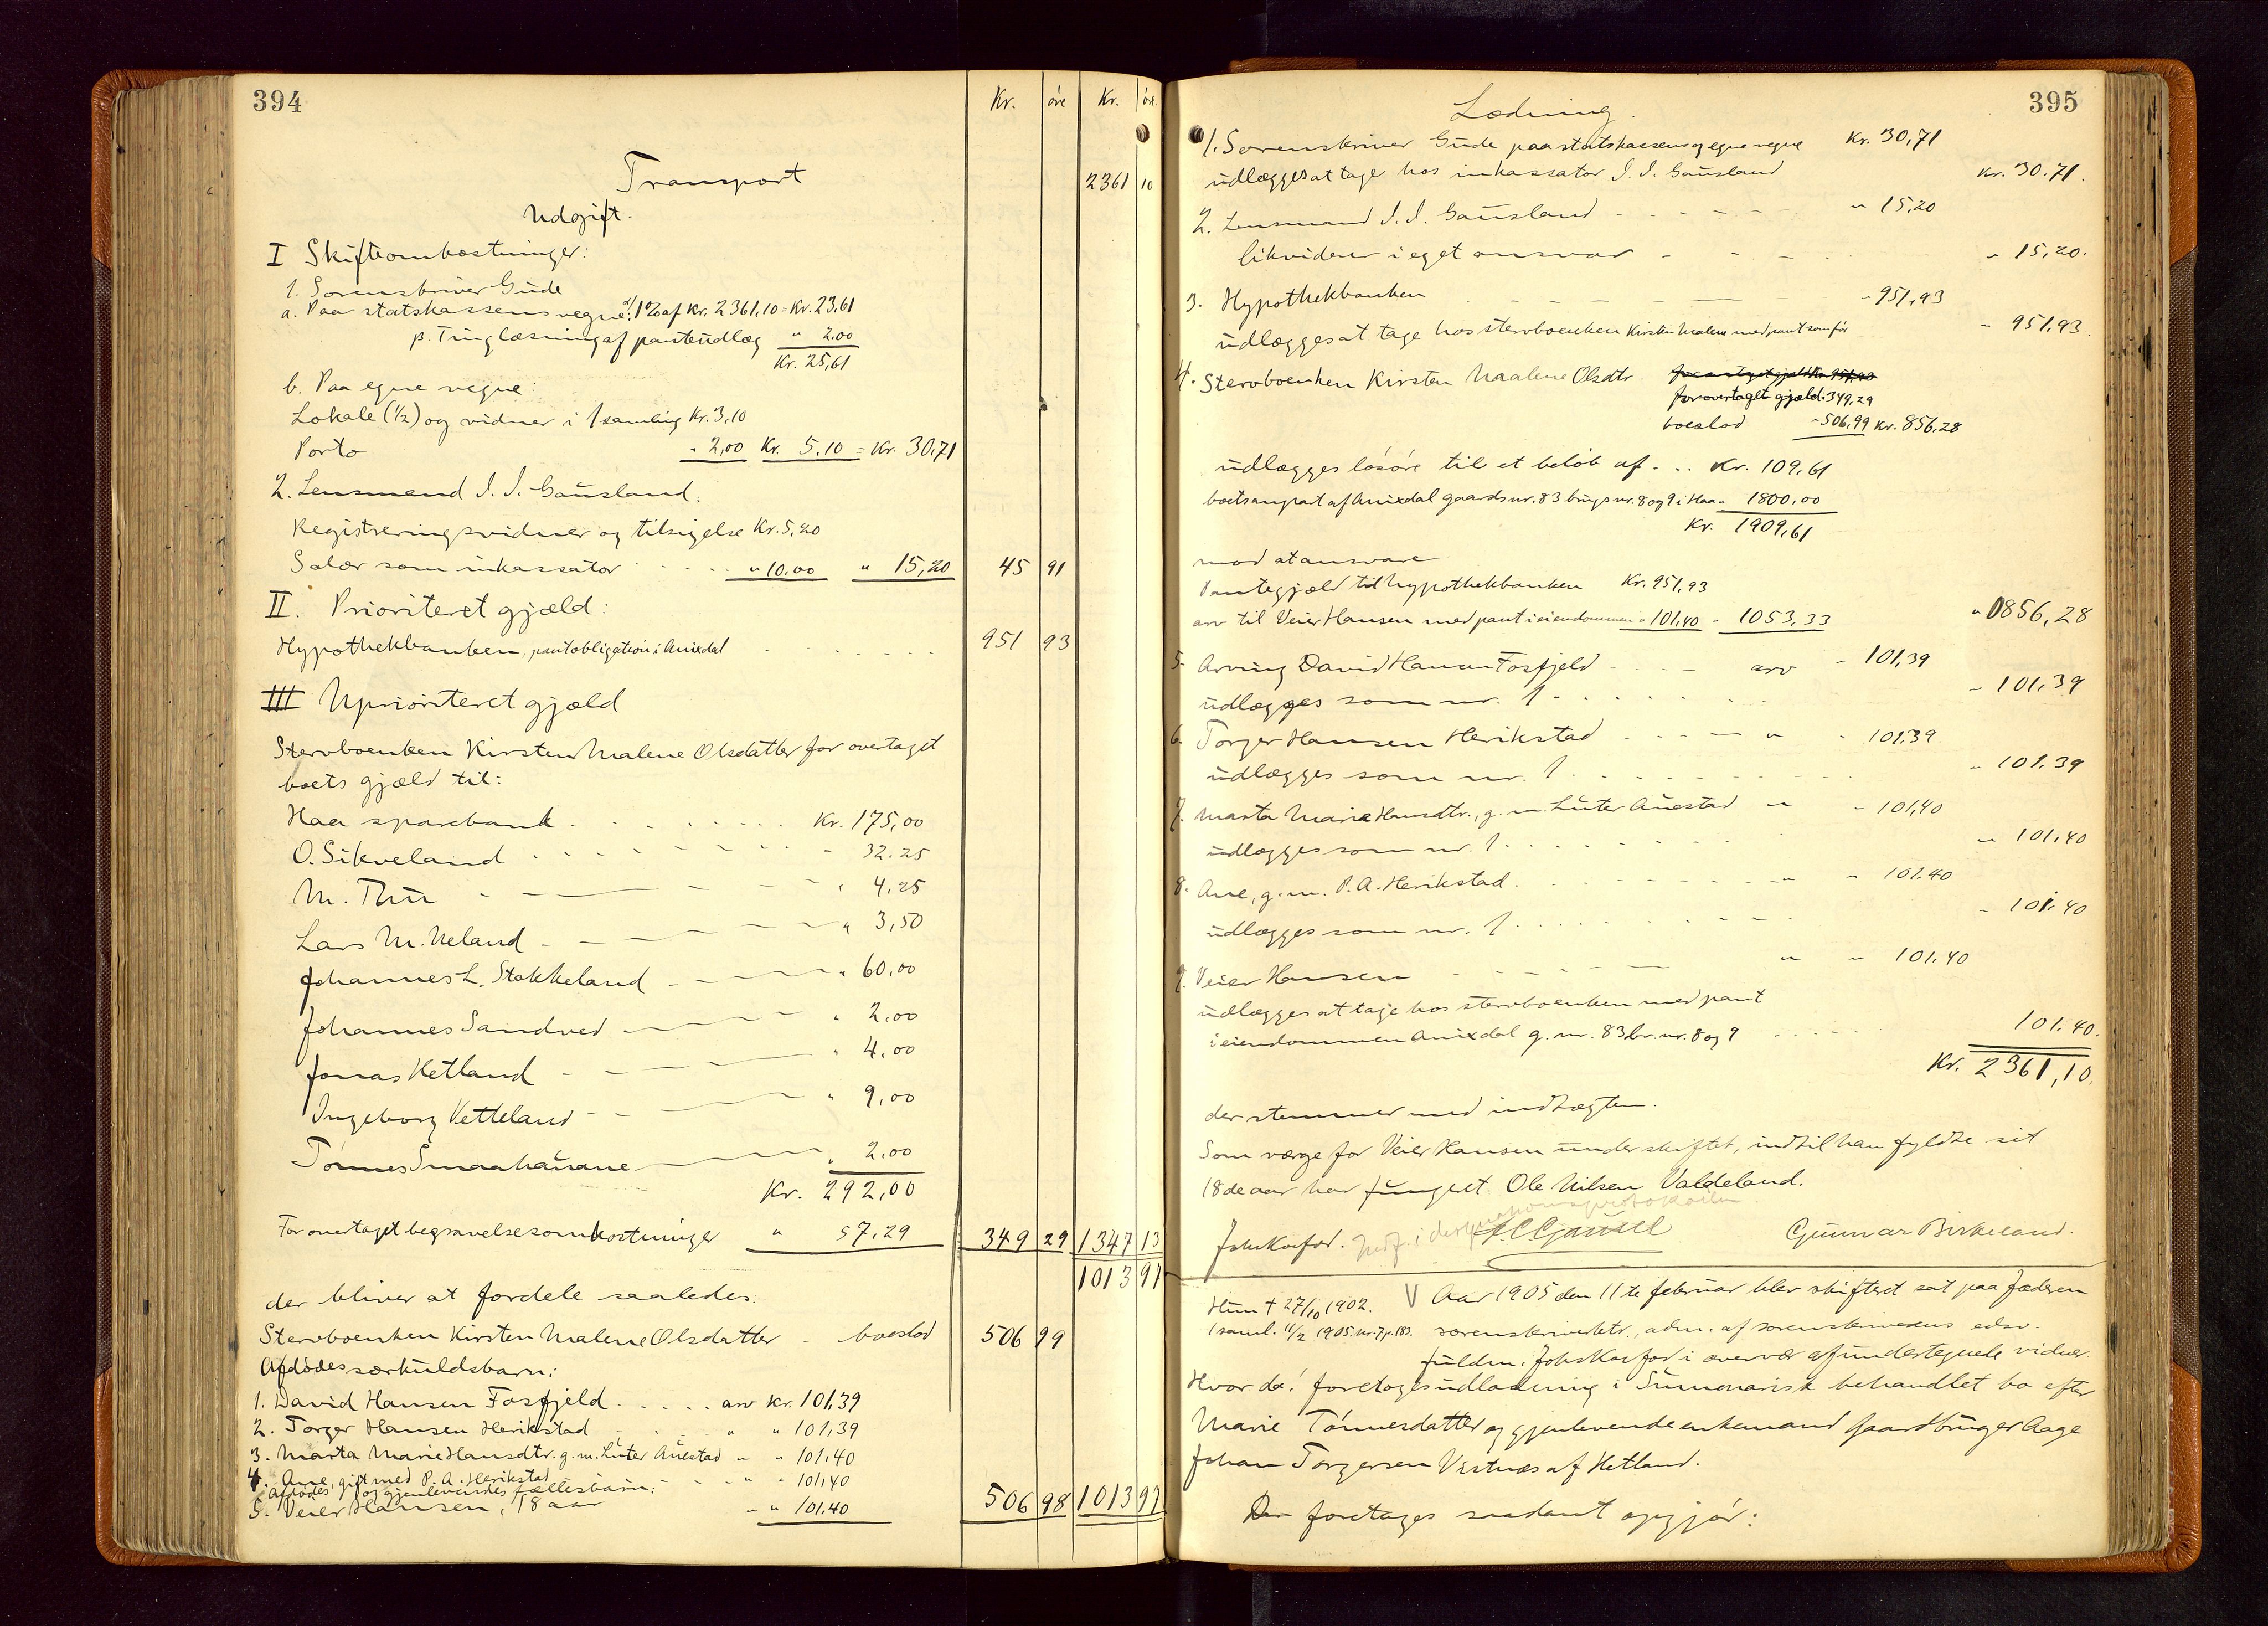 394
Kr. øre Kr. øre
Transport 2361 10
Udgift.
I Skifteomkostninger:
1. Sorenskriver Gude
a. Paa statskassens vegne: α/ 1% af Kr. 2361,10 = Kr. 23,61
β. Tinglæsning af panteudlæg " 2.00
Kr. 25,61
b. Paa egne vegne:
Lokale (1/2) og vidner i 1 samling Kr. 3,10
Porto - 2,00 Kr. 5.10 = Kr. 30,71
2. Lensmand I. I. Gausland.
Registreringsvidner og tilsigelse Kr. 5,20
Salær som inkassator " 10.00 " 15,20 45 91
II. Prioriteret gjæld:
Hypothekbanken, pantobligation i Anixdal 951 93
III Uprioriteret gjæld
Stervboenken Kirsten Malene Olsdatter for overtaget
boets gjæld til:
Haa sparebank Kr. 175,00
O. Sikveland - 32.25
M. Thu " 4,25
Lars M. Neland " 3,50
Johannes L. Stokkeland " 60,00
Johannes Sandved " 2.00
Jonas Hetland " 4,00
Ingeborg Vetteland " 9,00
Tønnes Smaahauane " 2.00
Kr. 292,00
For overtaget begravelsesomkostninger " 57,29 349 29 1347 13
1013 97
der bliver at fordele saaledes:
Stervboenken Kirsten Malene Olsdatter - boeslod 506 99
Afdødes særkuldsbarn:
1. David Hansen Fosfjeld arv Kr. 101,39
2. Torger Hansen Herikstad " " 101,39
3. Marta Marie Hansdtr. g. m. Luter Auestad " " 101,40
4. Ane, gift med P. A. Herikstad " " 101,40
Afdødes og gjenlevendes fællesbarn:
5. Veier Hansen, 18 aar " " 101.40 506 98 1013 97
395
Lodning.
1. Sorenskriver Gude paa statskassens og egne vegne Kr. 30,71
udlægges at tage hos inkassator I. I. Gausland Kr. 30.71.
2. Lensmand I. I. Gausland " 15,20
likviderer i eget ansvar " 15,20.
3. Hypothekbanken - 951,93
udlægges at tage hos stervboenken Kirsten Malene med pant som før " 951,93.
4. Stervboenken Kirsten Maalene Olsdtr.
for overtaget gjæld - 349,29
boeslod - 506,99 Kr. 856,28
udlægges løsøre til et beløb af . .. Kr. 109,61
boets anpart af Anixdal gaardsnr. 83 brugsnr. 8 og 9 i Haa " 1800,00
Kr. 1909,61
mod at ansvare
Pantegjæld til hypothekbanken Kr. 951,93
arv til Veier Hansen med pant i eiendommen " 101,40 - 1053,33 " 0856,28
5. Arving David Hansen Fosfjeld arv - 101,39
udlægges som nr. 1 - 101,39
6. Torger Hansen Herikstad " - 101,39
udlægges som nr. 1 - 101.39
7. Marta Marie Hansdtr., g. m. Luter Auestad " - 101,40
udlægges som nr. 1 " 101,40
8. Ane, g. m. P. A. Herikstad " " 101.40
udlægges som nr. 1 - 101.40
9. Veier Hansen " " 101.40
udlægges at tage hos stervboenken med pant
i eiendommen Anixdal g. nr. 83 br. nr. 8 og 9 101.40.
Kr. 2361,10.
der stemmer med indtægten.
Som værge for Veier Hansen under skiftet, indtil han fyldte sit
18de aar har fungert Ole Nilsen Valdeland.
Joh Korfod. Gunnar Birkeland.
Hun † 27/10 1902. V Aar 1905 den 11te februar blev skifteret sat paa Jæderen
1 saml. 11/2 1905. nr. 7 p. 183. sorenskriverktr., adm. af sorenskriverens edsv.
fuldm. Joh Korfod i overvær af undertegnede vidner.
Hvor da: foretoges udlodning i Summarisk behandlet bo efter
Marie Tønnesdatter og gjenlevende enkemand gaardbruger Aage
Johan Torgersen Vestnæs af Hetland.
Der foretages saadant opgjør: